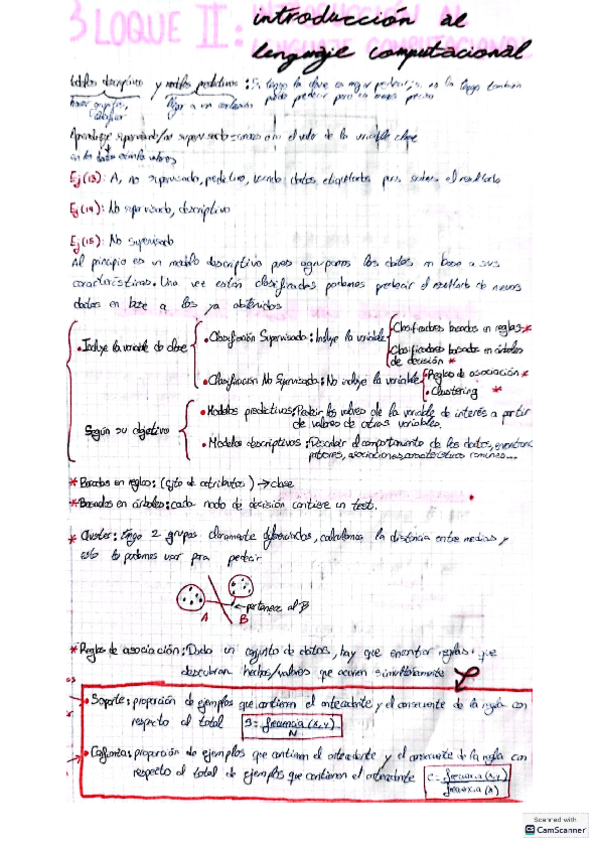 BLOQUE II: introducción al
lenguaje computacional
Modelos descriptivos y modelos predictivos: Si tengo la clave es mejor predecir, si no la tengo también
puedo predecir pero es menos preciso
Aprendizaje supervisado/no supervisado = conozco o no el valor de la variable clave
Ej(13): A, no supervisado, predictivo, datos etiquetados para el resultado
Ej(14): No supervisado, descriptivo
Ej(15): No supervisado
Al principio es un modelo descriptivo pues agrupamos los datos en base a sus
características. Una vez están clasificadas podemos predecir el resultado de nuevos
datos en base a los ya obtenidos
• Incluye la variable de clase
• Clasificación Supervisada: Incluye la variable
Clasificadores basados en reglas*
Clasificadores basados en árboles
de decisión *
• Clasificación No Supervisada: No incluye la variable
• Reglas de asociación *
• Clustering *
Según su objetivo
• Modelos predictivos: Predecir los valores de la variable de interés a partir
de valores de otras variables.
• Modelos descriptivos: Describir el comportamiento de los datos, encontrar
patrones, asociaciones, características comunes...
* Basados en reglas: (cjto de atributos) → clase
* Basados en árboles: cada nodo de decisión contiene un test.
* Cluster: tengo 2 grupos claramente diferenciados, calculamos la distancia entre medias y
esto lo podemos usar para predecir
A B ← pertenece al B
* Reglas de asociación: Dado un conjunto de datos, hay que encontrar reglas que
descubran hechos/valores que ocurren simultáneamente
• Soporte: proporción de ejemplos que contienen el antecedente y el consecuente de la regla con
respecto al total S = frecuencia (x,y) / N
• Confianza: proporción de ejemplos que contienen el antecedente y el consecuente de la regla con
respecto al total de ejemplos que contienen el antecedente C = frecuencia (x,y) / frecuencia (x)
Scanned with
CamScanner